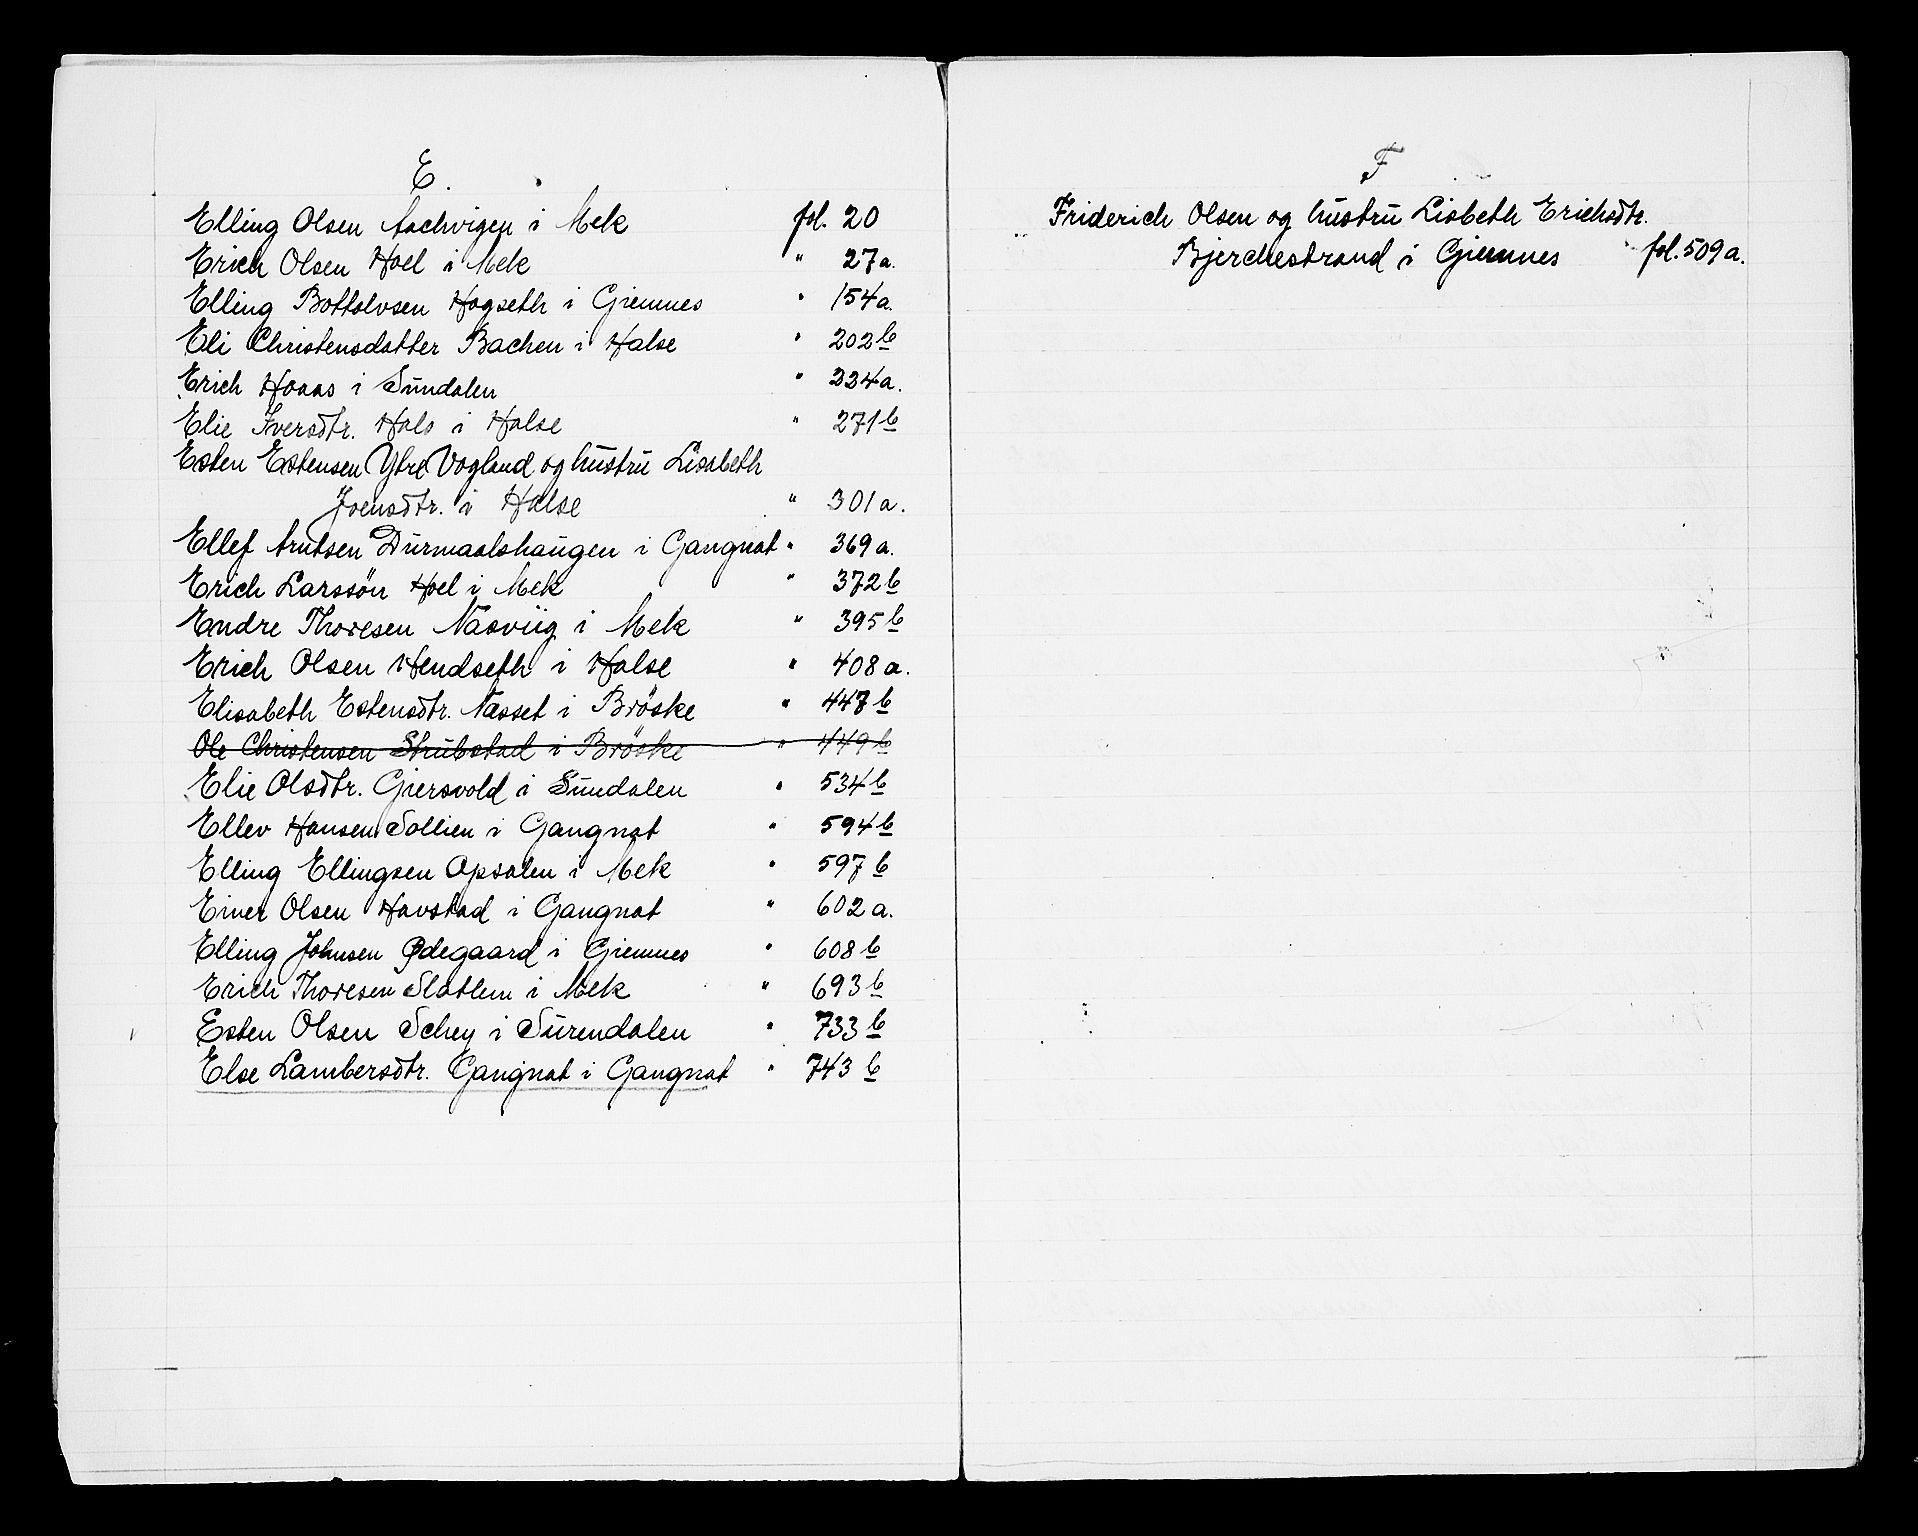 E.
Elling Olsen Aachvigen i Mek fol. 20
Erich Olsen Hoel i Mek " 27a.
Elling Bottolvsen Hogseth i Giemnes " 154a.
Eli Christensdatter Bachen i Halse " 202b
Erich Hoaas i Sundalen " 224a.
Elie Iversdtr. Hals i Halse " 271b
Esten Estensen Ytre Vogland og hustru Lisabeth
Joensdtr. i Halse " 301a.
Ellef Arntsen Durmaalshaugen i Gangnat " 369a.
Erich Larssön Hoel i Mek " 372b
Endre Thoresen Næsviig i Mek " 395b
Erich Olsen Hendseth i Halse " 408a.
Elisabeth Estensdtr. Næsset i Bröske " 447b
Ole Christensen Strubstad i Bröske " 449b
Elie Olsdtr. Giersvold i Sundalen " 534b
Ellev Hansen Sollien i Gangnat " 594b
Elling Ellingsen Opsalen i Mek " 597b
Einer Olsen Havstad i Gangnat " 602a.
Elling Johnsen Ødegaard i Giemnes " 608b
Erich Thoresen Slatlem i Mek " 693b
Esten Olsen Schey i Surendalen " 733b
Else Lambersdtr. Gangnat i Gangnat " 743b
F
Friderich Olsen og hustru Lisbeth Erichsdtr.
Bjerchestrand i Giemnes fol. 509a.